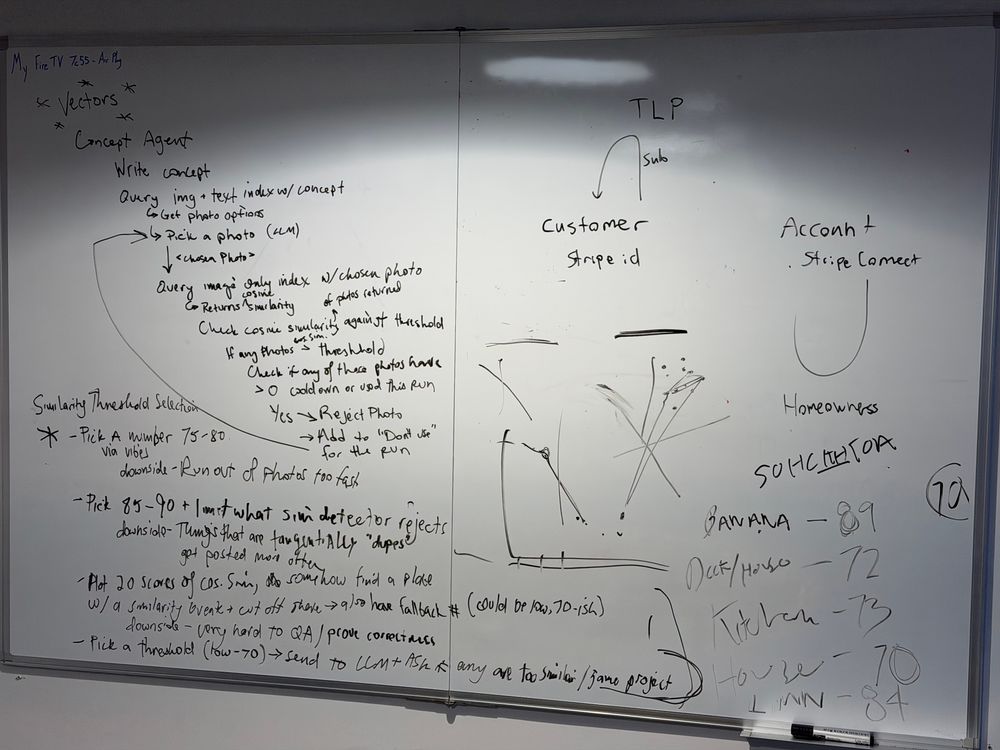 My FireTV 7c55 - Air Ply
Vectors
Concept Agent
Write concept
Query img + text index w/ concept
Get photo options
Pick a photo (LLM)
<chosen Photo>
Query image only index w/ chosen photo
Returns cosine similarity of photos returned
Check cosine similarity against threshold
If any photos cos sim. > threshhold
Check if any of these photos have
> 0 cooldown or used this run
Yes → Reject Photo
→ Add to "Don't use"
for the run
Similarity Threshold Selection
* - Pick A number 75-80
via vibes
downside - Run out of photos too fast
- Pick 85-90 + limit what sim detector rejects
downside - Things that are tangentially "dupes"
get posted more often
- Plot 20 scores of cos. Sim, somehow find a place
w/ a similarity event + cut off there → also have fallback # (could be low, 70-ish)
downside - very hard to QA / prove correctness
- Pick a threshold (low-70) → send to LLM + Ask if any are too similar / same project
TLP
Sub
Customer
Stripe id
Account
Stripe Connect
Homeowness
70
BANANA - 89
Deck/House - 72
Kitchen - 73
House - 70
- 84